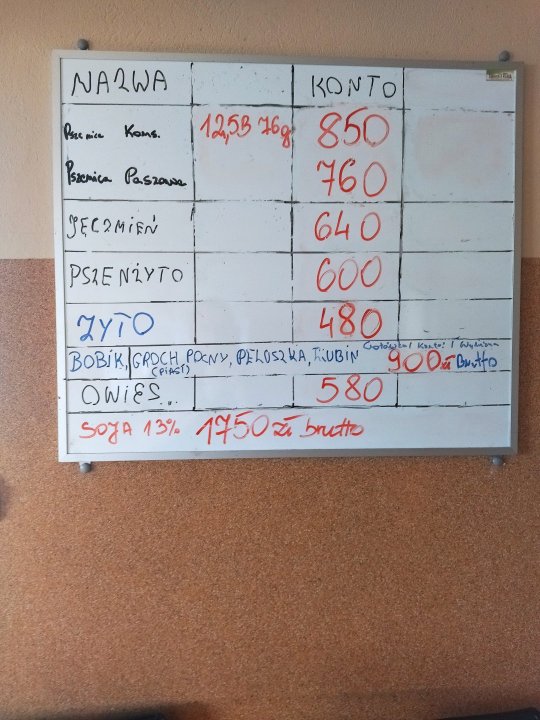 NAZWA KONTO
Pszenica Kons. 12,5B 76g 850
Pszenica Paszowa 760
JĘCZMIEŃ 640
PSZENŻYTO 600
ŻYTO 480
Gotówka / Konto / Wymiana
BOBIK, GROCH POLNY, PELUSZKA, ŁUBIN 900 zł Brutto
(PIAST)
OWIES.. 580
SOJA 13% 1750 zł brutto